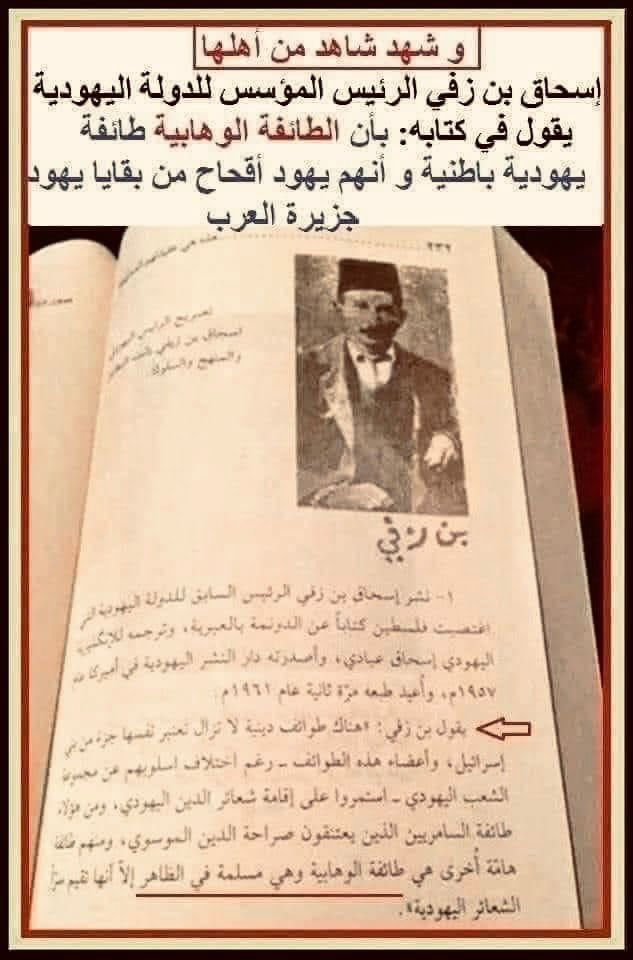 و شهد شاهد من أهلها
إسحاق بن زفي الرئيس المؤسس للدولة اليهودية
يقول في كتابه: بأن الطائفة الوهابية طائفة
يهودية باطنية و أنهم يهود أقحاح من بقايا يهود
جزيرة العرب
٢٣٢
تصريح الرئيس اليهودي
إسحاق بن زيفي
والمنهج والسلوك
بن زفي
١- نشر إسحاق بن زفي الرئيس السابق للدولة اليهودية التي
اغتصبت فلسطين كتاباً عن الدونمة بالعبرية، وترجمه للإنكليزية
اليهودي إسحاق عبادي، وأصدرته دار النشر اليهودية في أميركا عام
١٩٥٧م، وأعيد طبعه مرّة ثانية عام ١٩٦١م.
يقول بن زفي: «هناك طوائف دينية لا تزال تعتبر نفسها جزء من بني
إسرائيل، وأعضاء هذه الطوائف ـ رغم اختلاف اسلوبهم عن مجموعة
الشعب اليهودي ـ استمروا على إقامة شعائر الدين اليهودي، ومن هؤلاء
طائفة السامريين الذين يعتنقون صراحة الدين الموسوي، ومنهم طائفة
هامّة أُخرى هي طائفة الوهابية وهي مسلمة في الظاهر إلاّ أنها تقيم سرّاً
الشعائر اليهودية».